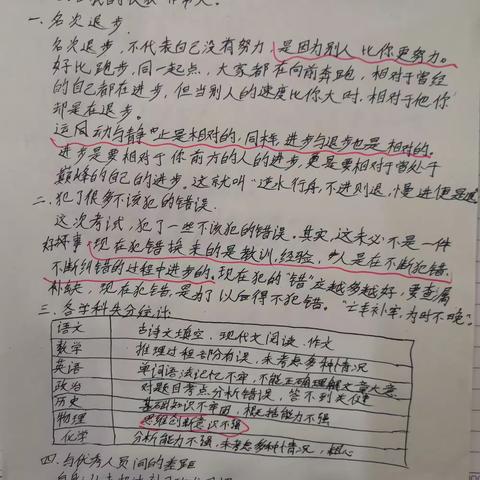 一.名次退步.
名次退步,不代表自己没有努力,是因为别人比你更努力。
好比跑步,同一起点,大家都在向前奔跑,相对于曾经
的自己都在进步,但当别人的速度比你大时,相对于他你
却是在退步.
运动与静止是相对的,同样,进步与退步也是相对的.
进步是要相对于你前方的人的进步,更是要相对于曾处于
巅峰的自己的进步。这就叫“逆水行舟,不进则退,慢进便是退
二.犯了很多不该犯的错误.
这次考试,犯了一些不该犯的错误.其实,这未必不是一件
好坏事,现在犯错换来的是教训,经验,人是在不断犯错,
不断纠错的过程中进步的.现在犯的“错”应越多越好,要查漏
补缺,现在犯错,是为了以后得不犯错。“亡羊补牢,为时不晚”.
三.各学科失分统计:
语文 古诗文填空、现代文阅读、作文
数学 推理过程部分有误,未考虑多种情况
英语 单词语法记忆不牢,不能正确理解文章大意
政治 对题目考点分析错误,答不到关键
历史 基础知识不牢固,概括能力不强
物理 思维创新意识不强
化学 分析能力不强,未考虑多种情况,粗心
四.与优秀人员间的差距